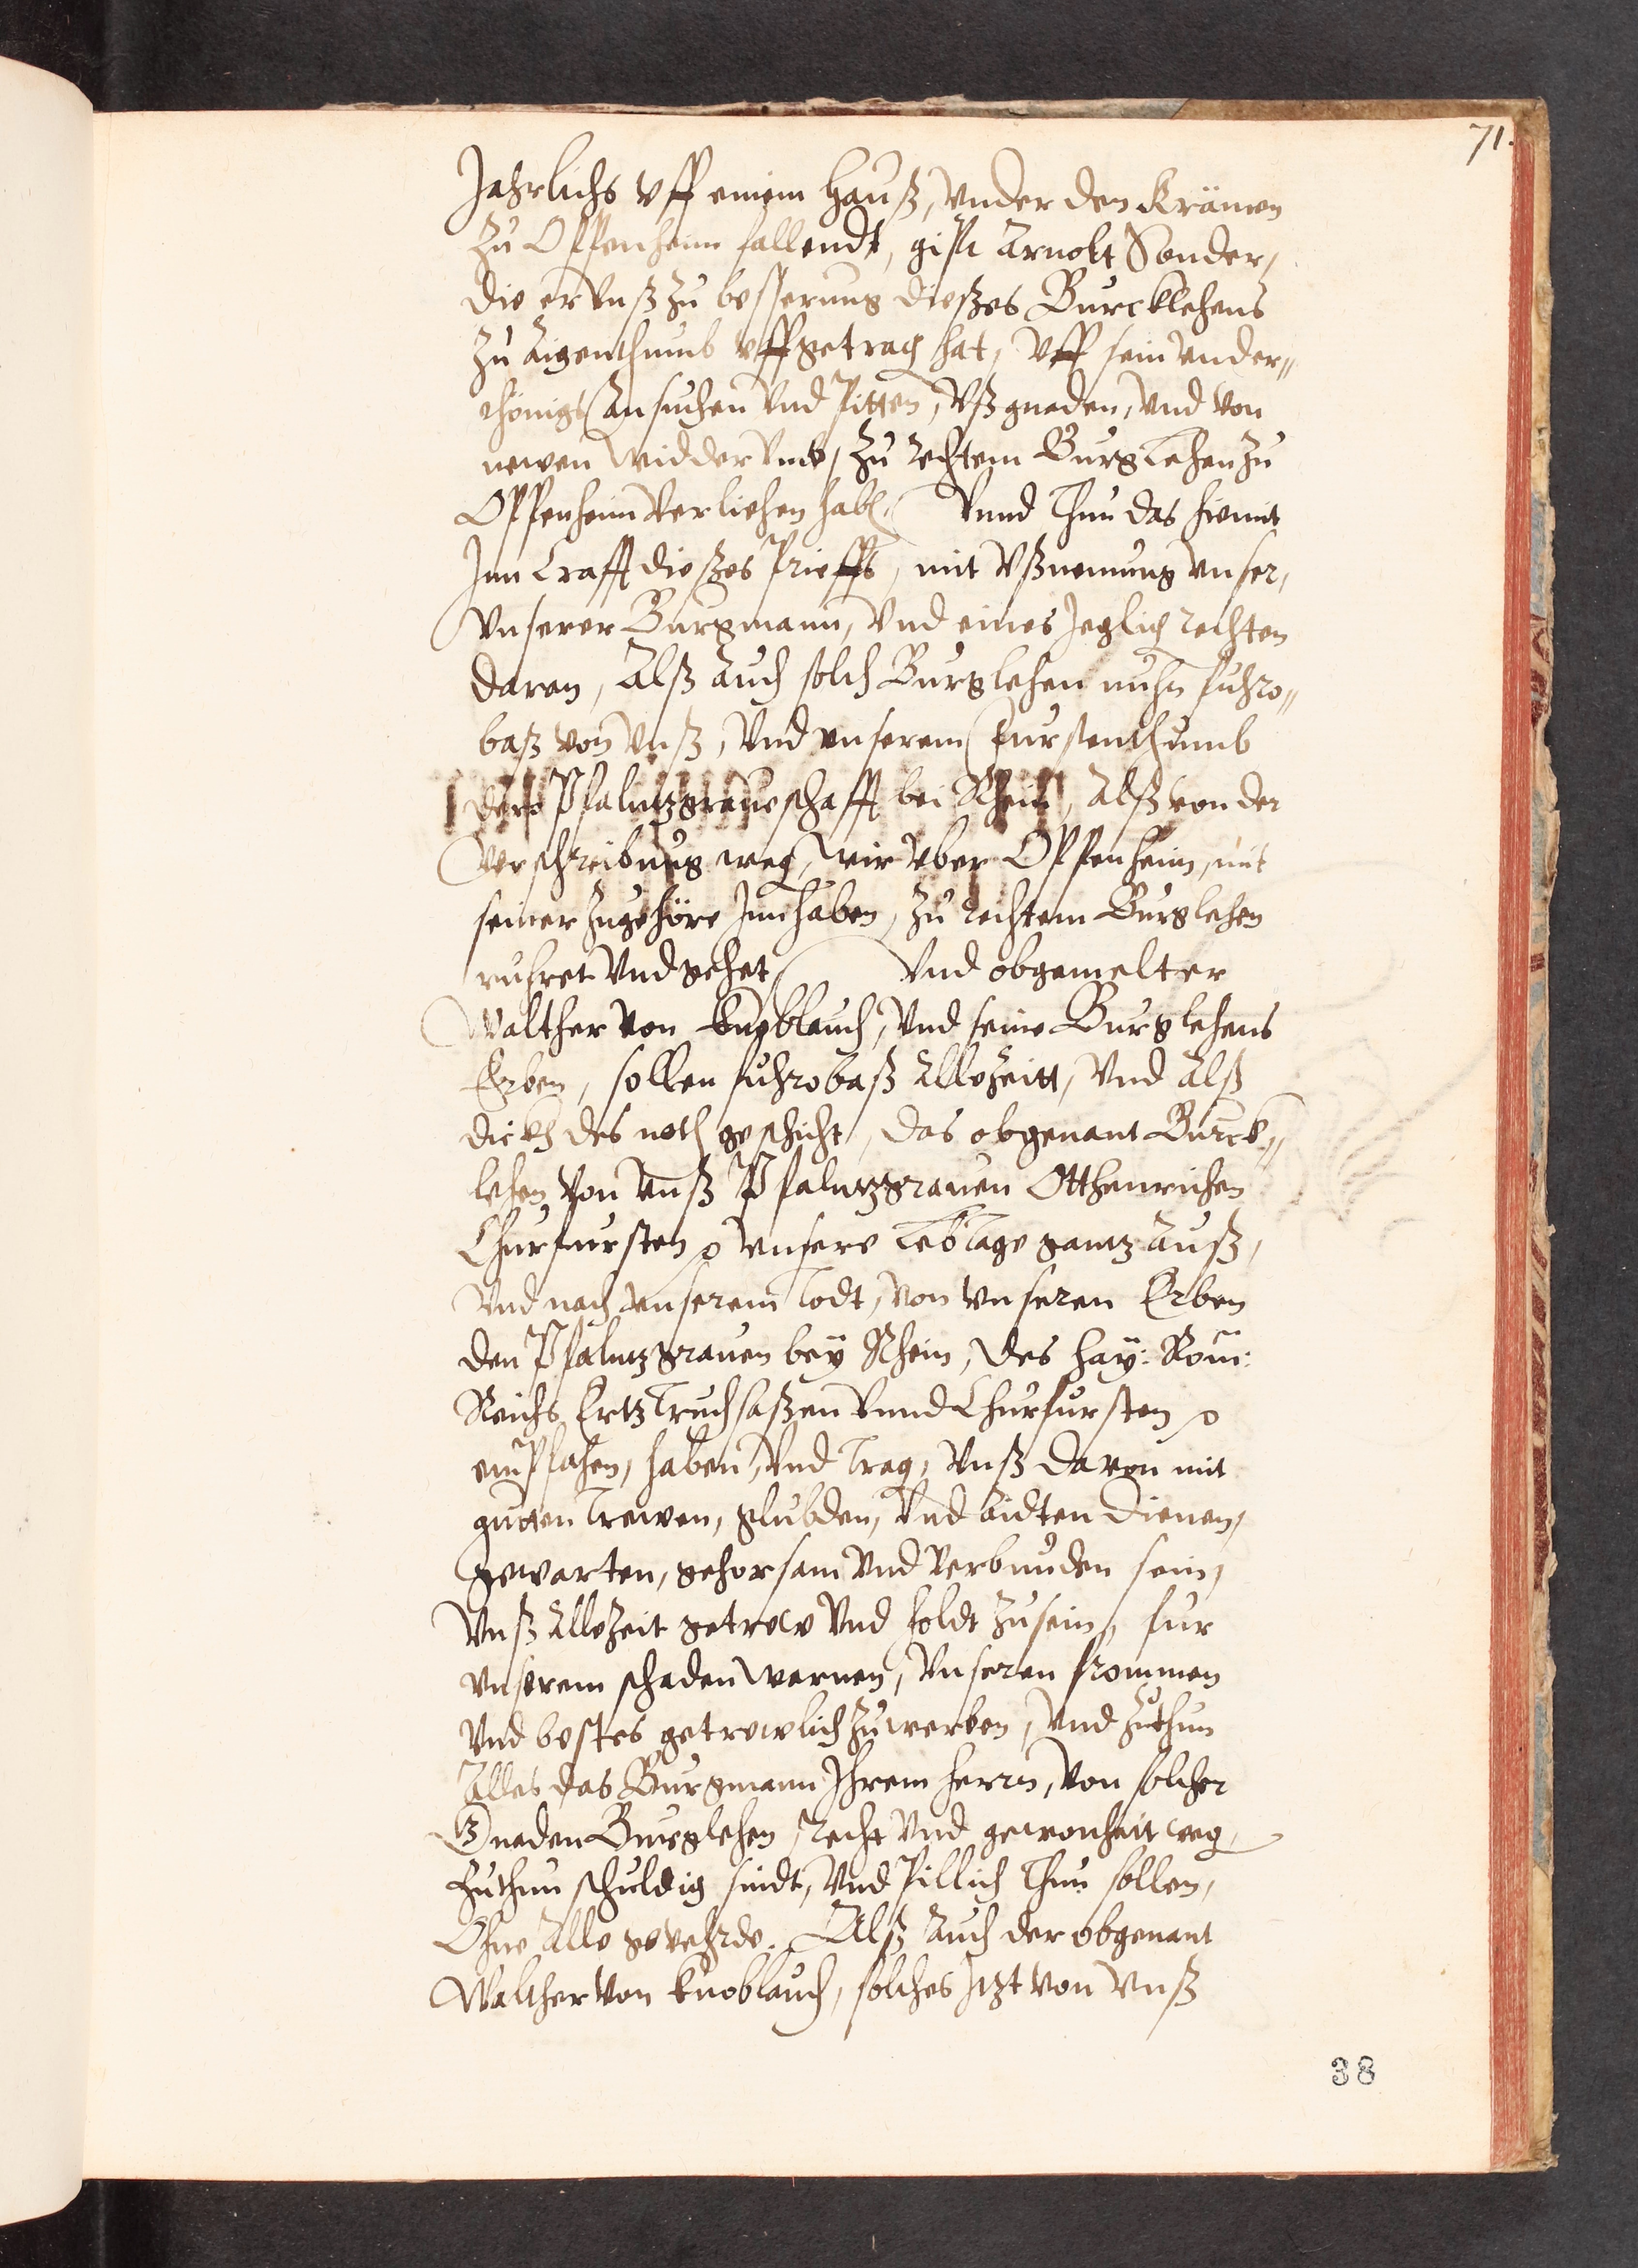 71.
Jahrlichs vff einem Hauß, vnder den Krämen
zu Oppenheim fallendt, gist Arnolt Sonder,
die er vnß zu besserung dießes Burcklehens
zu Aigenthumb vffgetrag hat, vff sein vnder„
thönigs Ansuchen vnd Pitten, vß gnaden, vnd von
newen widderumb, zu rechtem Burg Lehen zu
Oppenheim verliehen hab. Vnnd thun das hiemit
Inn Crafft dießes Prieffs, mit vßnemung vnser,
vnserer Burgmann, vnd eines Jeglich rechten
daran, Alß auch solch Burglehen nuhn fuhro„
baß von vnß, vnd vnserem furstenthumb
der Pfaltzgraueschafft bei Rhein, Alß von der
verschreibung weg, wir vber Oppenheim, mit
seiner zugehöre Innhaben, zu rechtem Burglehen
ruhret vnd gehet, Vnd obgemelter
Walther von Knoblauch, vnd seine Burglehens
Erben, sollen fuhrobaß Allezeitt, vnd Alß
dickh des noth geschicht, das obgenant Burck„
lehen von vnß Pfaltzgrauen Otthenrichen
Churfursten p vnsere Lebtage gantz auß,
vnd nach vnserem todt, von vnseren Erben
den Pfaltzgrauen bey Rhein, des hay: Röm:
Reichs Ertztruchsaßen vnnd Churfursten p
empfahen, haben, vnd trag, vnß dauon mit
gutten trewen, glubden, vnd aidten dienen,
gewarten, gehorsam vnd verbunden sein,
vnß Allezeit getrew vnd holdt zu sein, fur
vnserem schaden warnen, vnseren frommen
vnd bestes getrewlich zu werben, vnd zuthun
Alles das Burgmann Ihrem herrn, von solcher
Gnaden Burglehen, recht vnd gewonheit weg,
zuthun schuldig sindt, vnd Pillich thun sollen,
Ohne Alle gevehrde. Alß Auch der obgenant
Walther von Knoblauch, solches Itzt von vnß
38